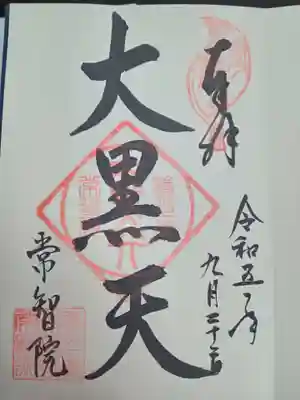 奉拝
令和五年
九月二十三日
大黒天
常智院